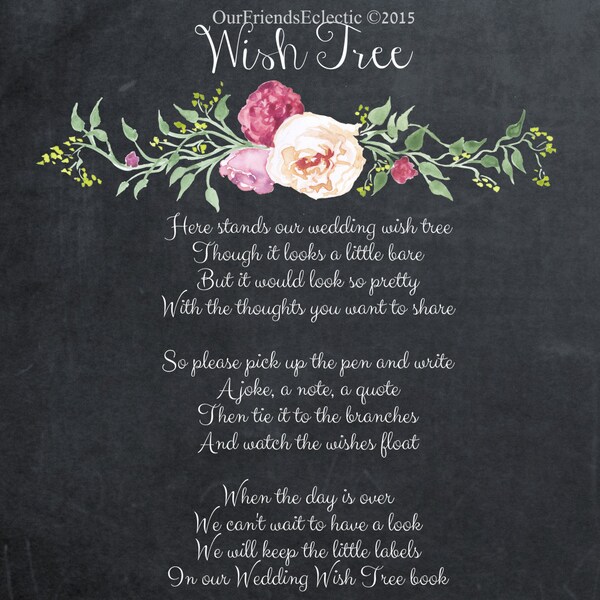 OurFriendsEclectic ©2015
Wish Tree
Here stands our wedding wish tree
Though it looks a little bare
But it would look so pretty
With the thoughts you want to share
So please pick up the pen and write
A joke, a note, a quote
Then tie it to the branches
And watch the wishes float
When the day is over
We can't wait to have a look
We will keep the little labels
In our Wedding Wish Tree book